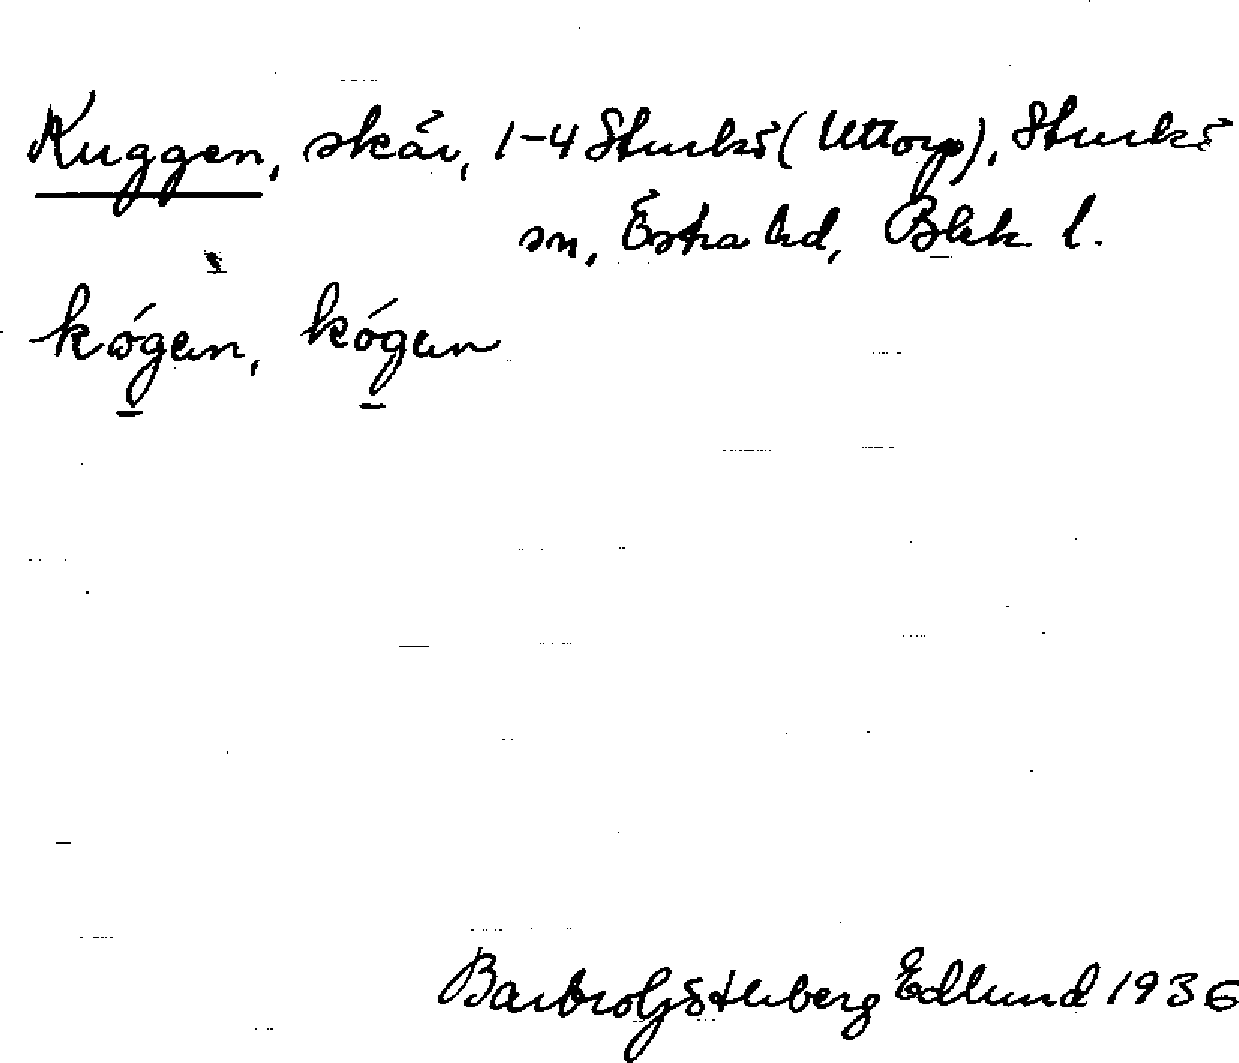 Kuggen, skär, 1-4 Sturkö (Uttorp), Sturkö
sn, Östra hd, Blek. l.
kógen, kógen
Barbro Edlund 1936